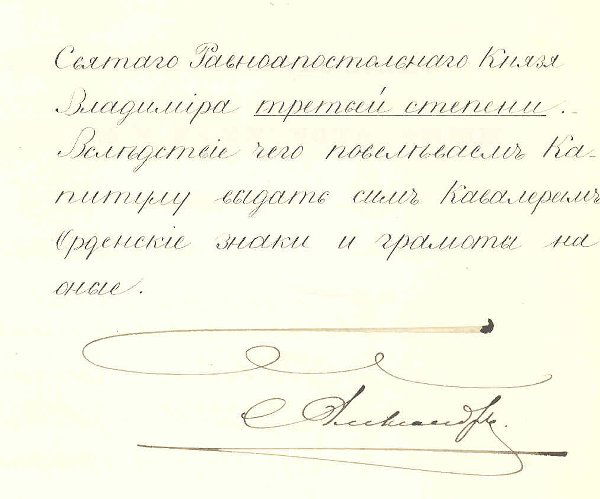 Святаго Равноапостольнаго Князя
Владиміра третьей степени.
Вслѣдствіе чего повелѣваемъ Ка-
питулу выдать симъ Кавалерамъ
Орденскіе знаки и грамоты на
оные.
Александръ.